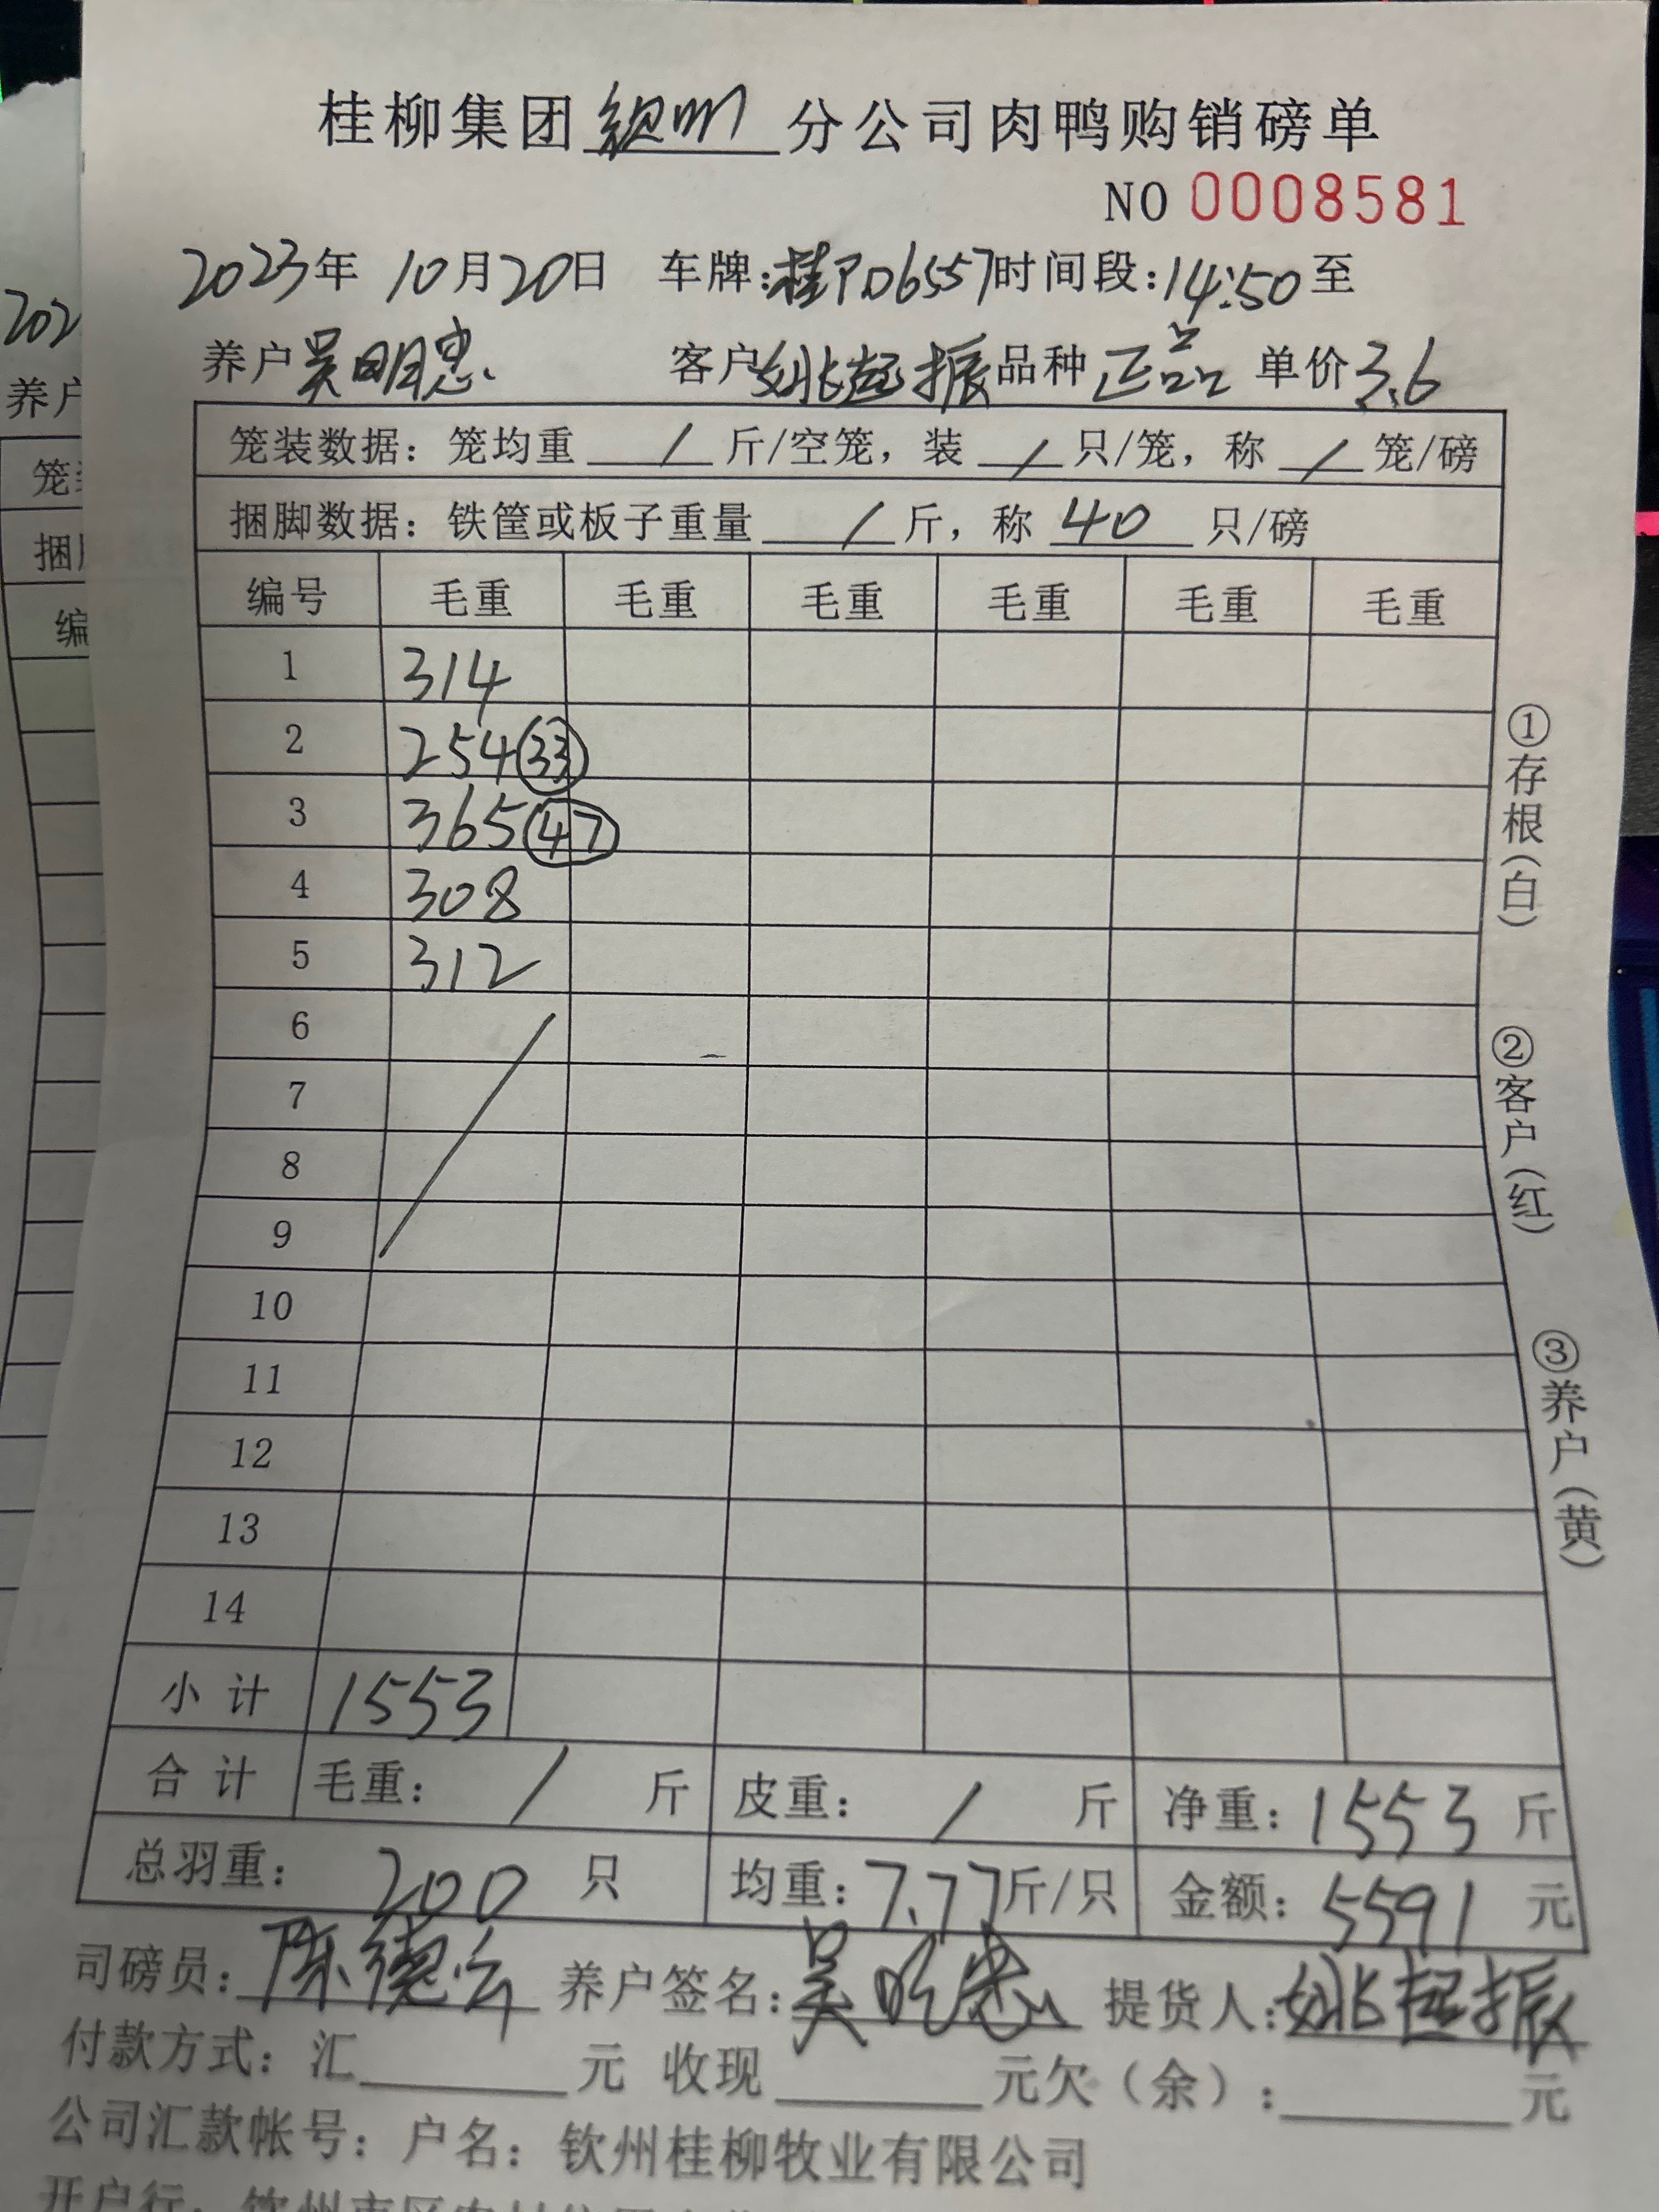 桂柳集团钦州分公司肉鸭购销磅单
NO 0008581
2023年 10月20日 车牌:桂PD6557 时间段:14:50至
养户 吴明忠 客户 姚超振 品种 正品 单价 3.6
笼装数据：笼均重 / 斤/空笼，装 / 只/笼，称 / 笼/磅
捆脚数据：铁筐或板子重量 / 斤，称 40 只/磅
编号 毛重 毛重 毛重 毛重 毛重 毛重
1 314
2 254 33
3 365 47
4 308
5 312
6
7
8
9
10
11
12
13
14
小计 1553
合计 毛重： / 斤 皮重： / 斤 净重：1553 斤
总羽重： 200 只 均重：7.77斤/只 金额：5591 元
司磅员：陈德云 养户签名：吴明忠 提货人：姚超振
付款方式：汇 元 收现 元欠（余）： 元
公司汇款帐号：户名：钦州桂柳牧业有限公司
开户行：钦州市区农村信用
①存根(白)
②客户(红)
③养户(黄)
202
养户
笼
捆
编